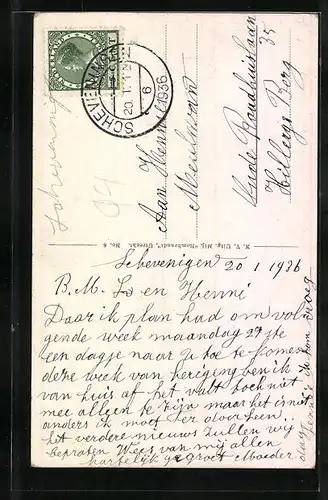 SCHEVENINGEN
20.1.1936
6
Aan Henni
Meuleman
Oude Raadhuislaan
35
Hillegersberg
N. V. Uitg. Mij. "Rembrandt", Utrecht. No. 6
Schevenigen 20 1 1936
B. M. en Henni
Daar ik plan had om vol
gende week maandag 27ste
een dagje naar je toe te komen
deze week van herigging ben ik
van huis af het valt toch niet
mee alleen te zijn maar het is niet
anders ik moet er door heen
het verdere nieuws zullen wij
bepraten Wees van mij allen
hartelijk gegroet Moeder
dag Henni ik kom